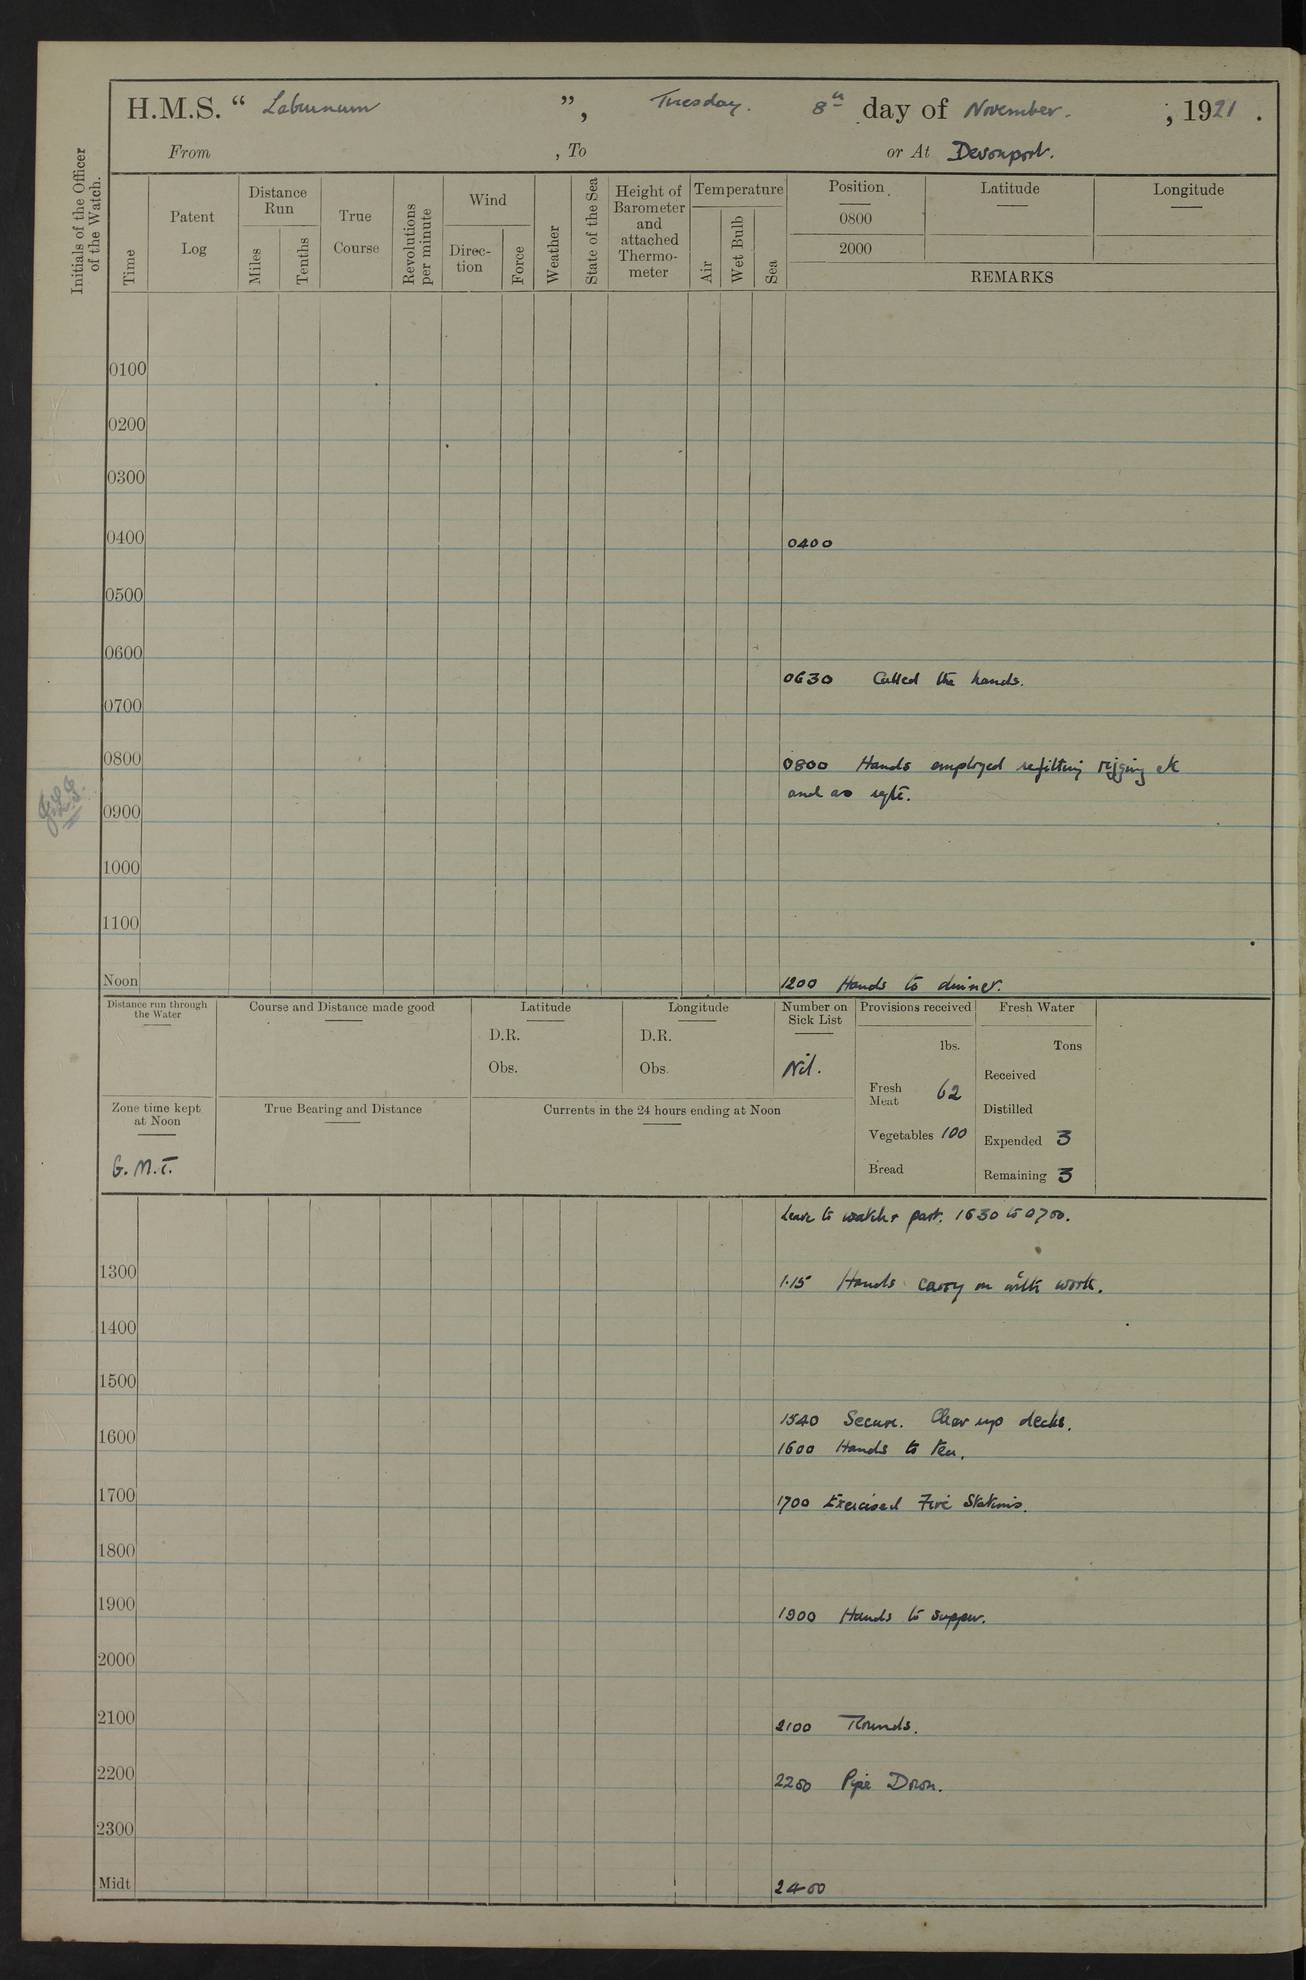 H.M.S. “ Laburnum ”, Tuesday. 8th day of November. , 1921 .
From , To or At Devonport.
Initials of the Officer of the Watch.
Time
Patent Log
Distance Run
Miles
Tenths
True Course
Revolutions per minute
Wind
Direc-tion
Force
Weather
State of the Sea
Height of Barometer and attached Thermo-meter
Temperature
Air
Wet Bulb
Sea
Position
0800
2000
Latitude
Longitude
REMARKS
0100
0200
0300
0400 0400
0500
0600
0630 Called the hands.
0700
0800 0800 Hands employed refitting rigging etc
and as reqte.
0900
1000
1100
Noon 1200 Hands to dinner.
Distance run through the Water
Course and Distance made good
Latitude
D.R.
Obs.
Longitude
D.R.
Obs.
Number on Sick List
Nil.
Provisions received
lbs.
Fresh Meat 62
Vegetables 100
Bread
Fresh Water
Tons
Received
Distilled
Expended 3
Remaining 3
Zone time kept at Noon
G.M.T.
True Bearing and Distance
Currents in the 24 hours ending at Noon
Leave to watch & part. 1630 to 0700.
1300 1.15 Hands carry on with work.
1400
1500
1540 Secure. Clear up decks.
1600 1600 Hands to tea.
1700 1700 Exercised Fire Stations.
1800
1900 1900 Hands to supper.
2000
2100 2100 Rounds.
2200 2200 Pipe Down.
2300
Midt 2400